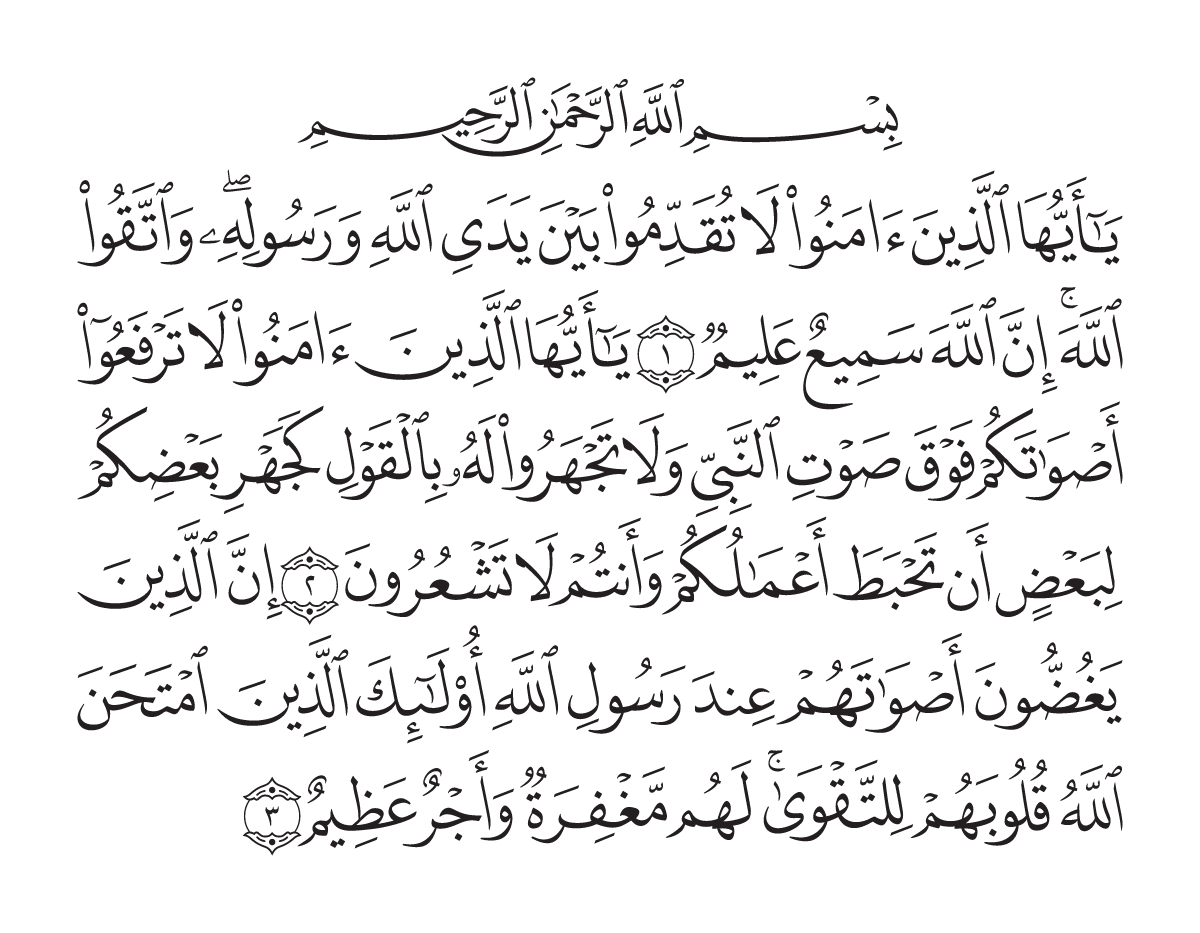 بِسْمِ ٱللَّهِ ٱلرَّحْمَٰنِ ٱلرَّحِيمِ
يَٰٓأَيُّهَا ٱلَّذِينَ ءَامَنُوا۟ لَا تُقَدِّمُوا۟ بَيْنَ يَدَىِ ٱللَّهِ وَرَسُولِهِۦۖ وَٱتَّقُوا۟
ٱللَّهَۚ إِنَّ ٱللَّهَ سَمِيعٌ عَلِيمٌ ۝١ يَٰٓأَيُّهَا ٱلَّذِينَ ءَامَنُوا۟ لَا تَرْفَعُوٓا۟
أَصْوَٰتَكُمْ فَوْقَ صَوْتِ ٱلنَّبِىِّ وَلَا تَجْهَرُوا۟ لَهُۥ بِٱلْقَوْلِ كَجَهْرِ بَعْضِكُمْ
لِبَعْضٍ أَن تَحْبَطَ أَعْمَٰلُكُمْ وَأَنتُمْ لَا تَشْعُرُونَ ۝٢ إِنَّ ٱلَّذِينَ
يَغُضُّونَ أَصْوَٰتَهُمْ عِندَ رَسُولِ ٱللَّهِ أُو۟لَٰٓئِكَ ٱلَّذِينَ ٱمْتَحَنَ
ٱللَّهُ قُلُوبَهُمْ لِلتَّقْوَىٰۚ لَهُم مَّغْفِرَةٌ وَأَجْرٌ عَظِيمٌ ۝٣